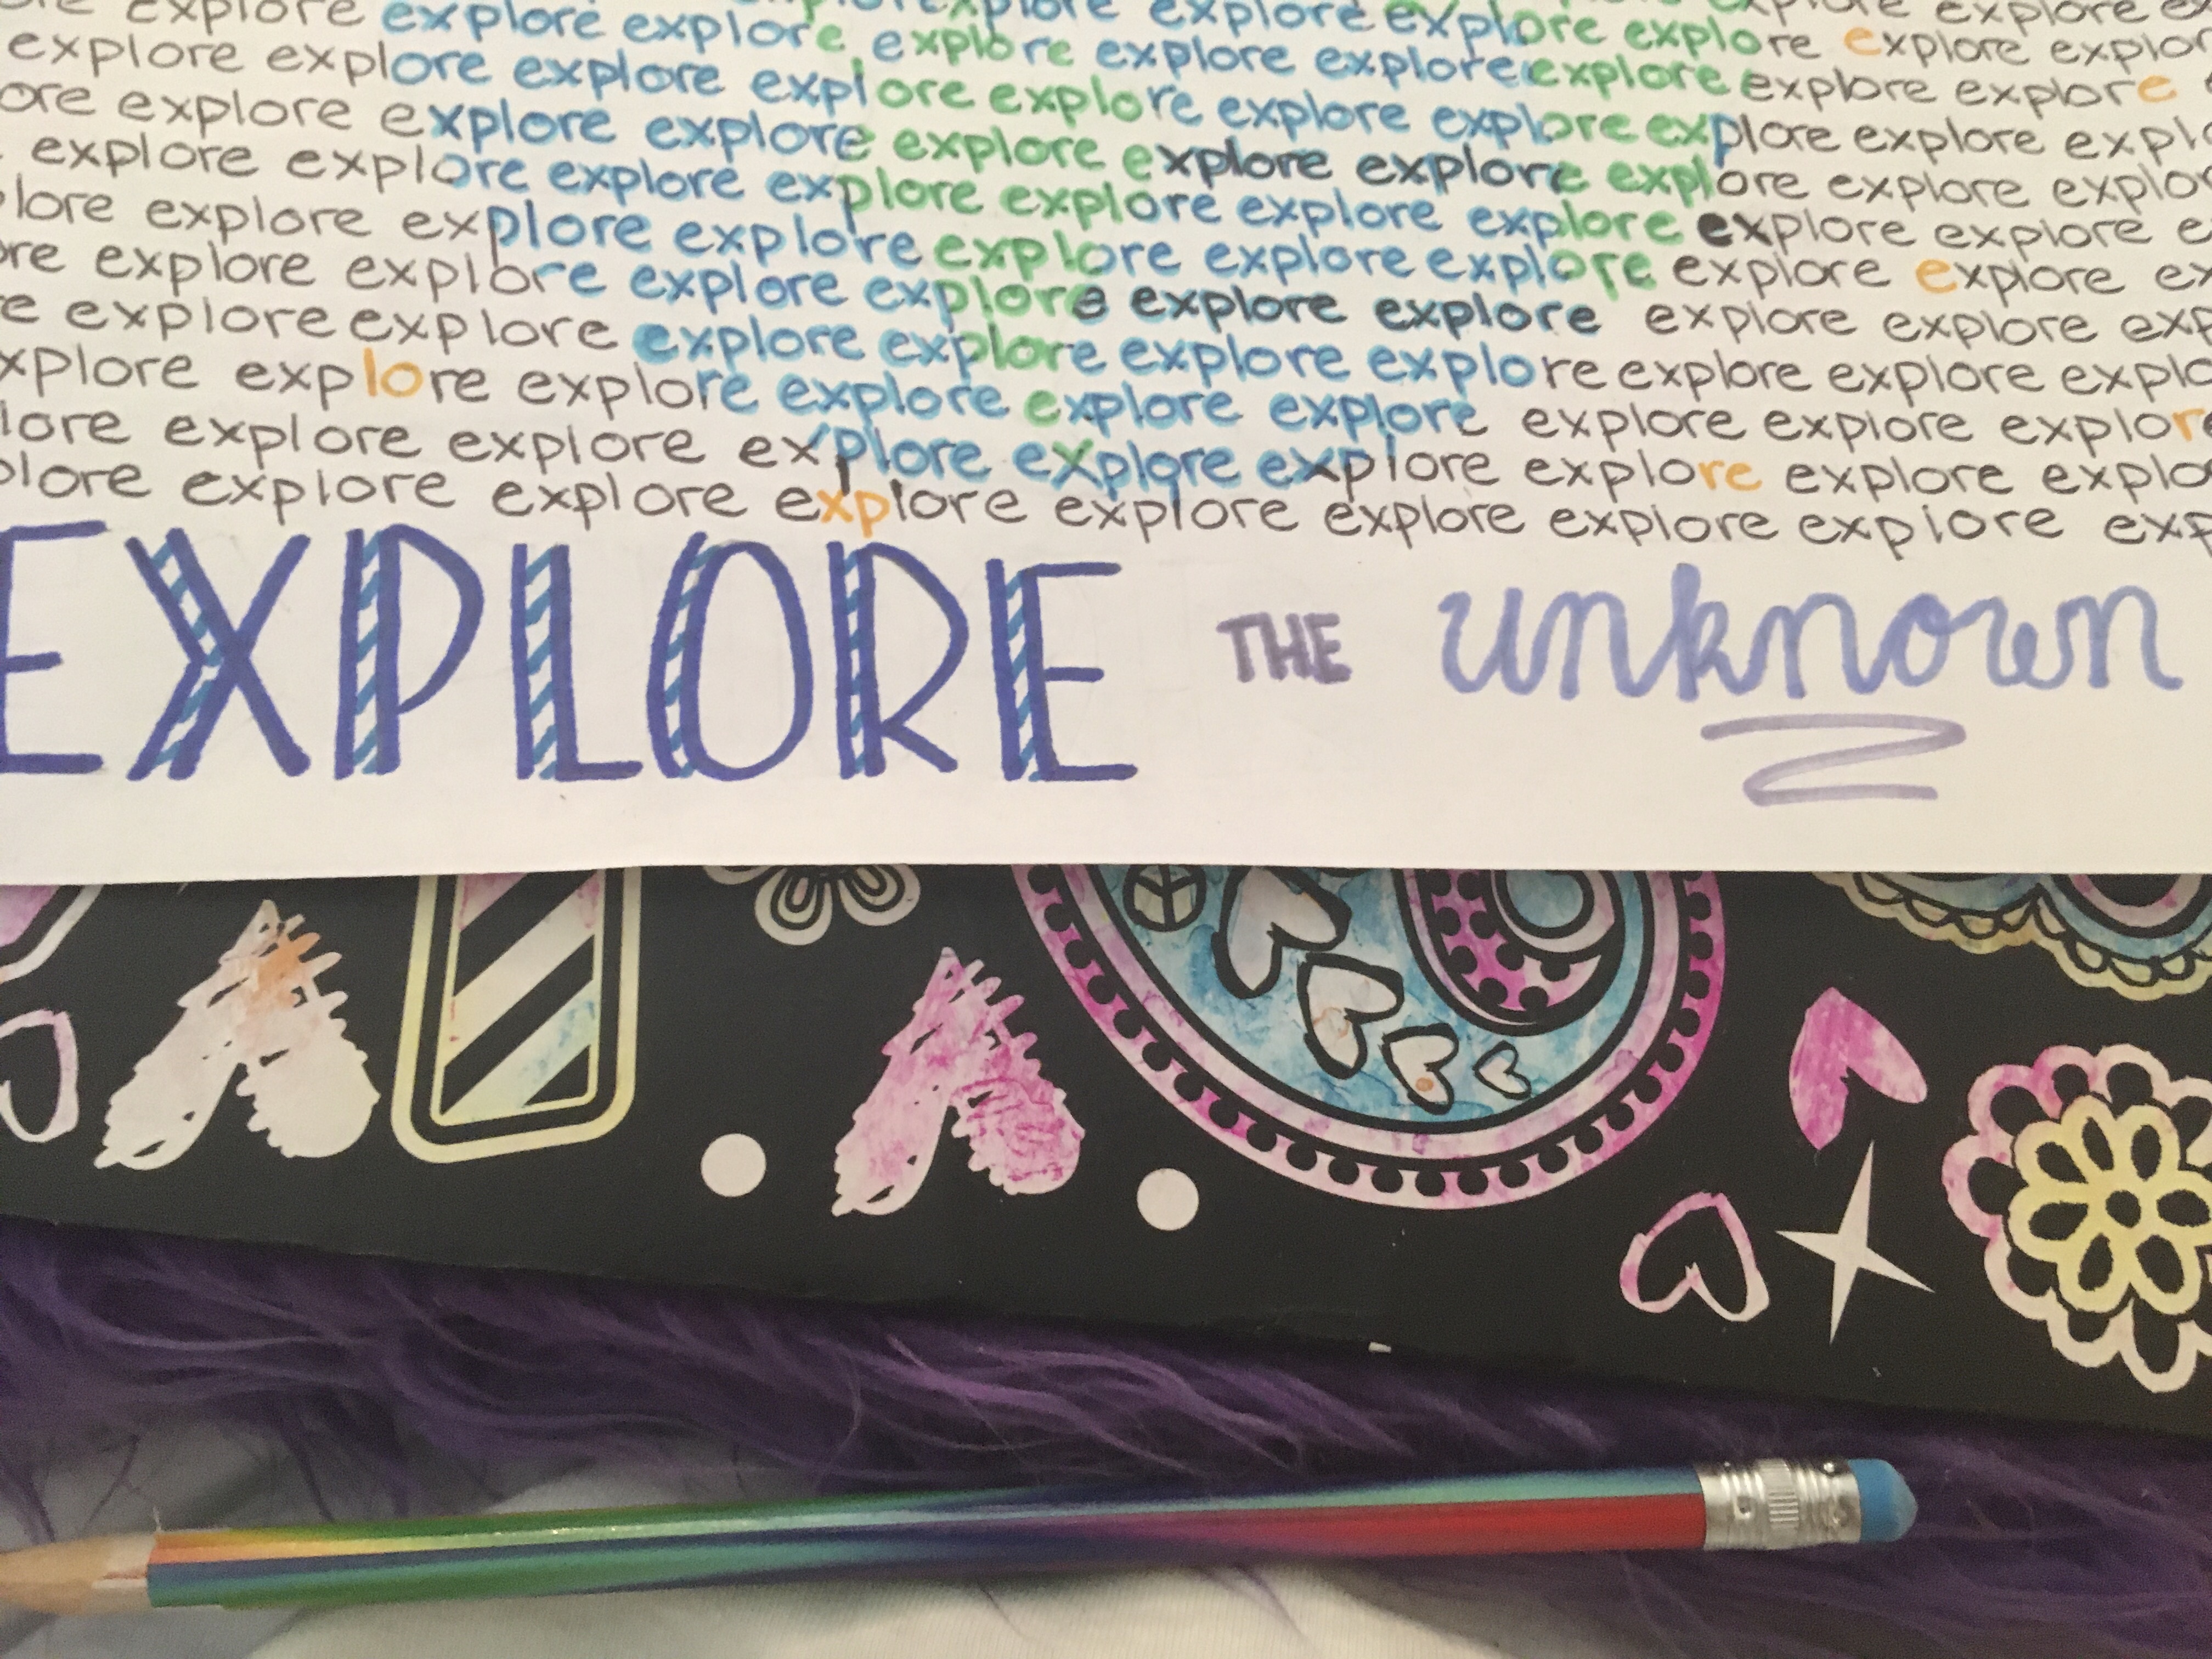 explore explore explore explore explor
explore explore explore explore explore explore explore explore explore
explore explore explore explore explore explore explore explore explore expl
ore explore explore explore explore explore explore explore explore explo
explore explore explore explore explore explore explore explore explore e
plore explore explore explore explore explore explore explore explore ex
re explore explore explore explore explore explore explore explore exp
e explore explore explore explore explore explore explore explore explo
xplore explore explore explore explore explore explore explore explor
lore explore explore explore explore explore explore explore explo
plore explore explore explore explore explore explore explore exp
EXPLORE THE unknown